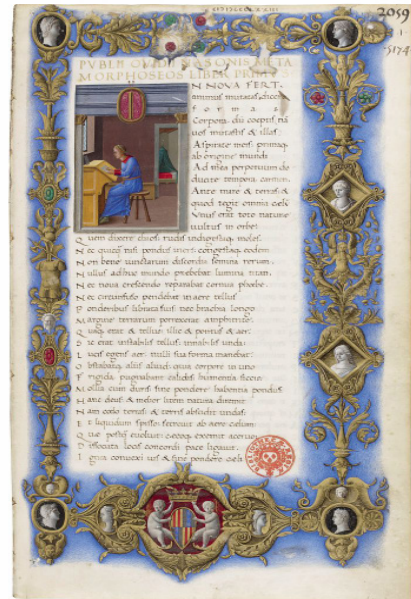 2059
1
5174
PVBLII OVIDII NASONIS META
MORPHOSEOS LIBER PRIMVS
I
N NOVA FERT
animus mutatas dicere
formas
Corpora dii coeptis na
uos mutastis & illas
Aspirate meis primaq
ab origine mundi
Ad mea perpetuum de
ducite tempora carmen
Ante mare & terras &
quod tegit omnia celū
Vnus erat toto nature
uultus in orbe
Quem dixere chaos rudis indigestaq moles
Nec quicq nisi pondus iners congestaq eodem
Non bene iunctarum discordia semina rerum
Nullus adhuc mundo prebebat lumina titan
Nec noua crescendo reparabat cornua phoebe
Nec circunfuso pendebat in aere tellus
Ponderibus librata suis nec brachia longo
Margine terrarum porrexerat amphitrite
Quaq erat & tellus illic & pontus & aer
Sic erat instabilis tellus innabilis unda
Lucis egens aer nulli sua forma manebat
Obstabatq aliis aliud quia corpore in uno
Frigida pugnabant calidis humentia siccis
Mollia cum duris sine pondere habentia pondus
Hanc deus & melior litem natura diremit
Nam celo terras & terris abscidit undas
Et liquidum spisso secreuit ab aere celum
Quae postq euoluit cecoq exemit aceruo
Dissociata locis concordi pace ligauit
Ignea conuexi uis & sine pondere celi